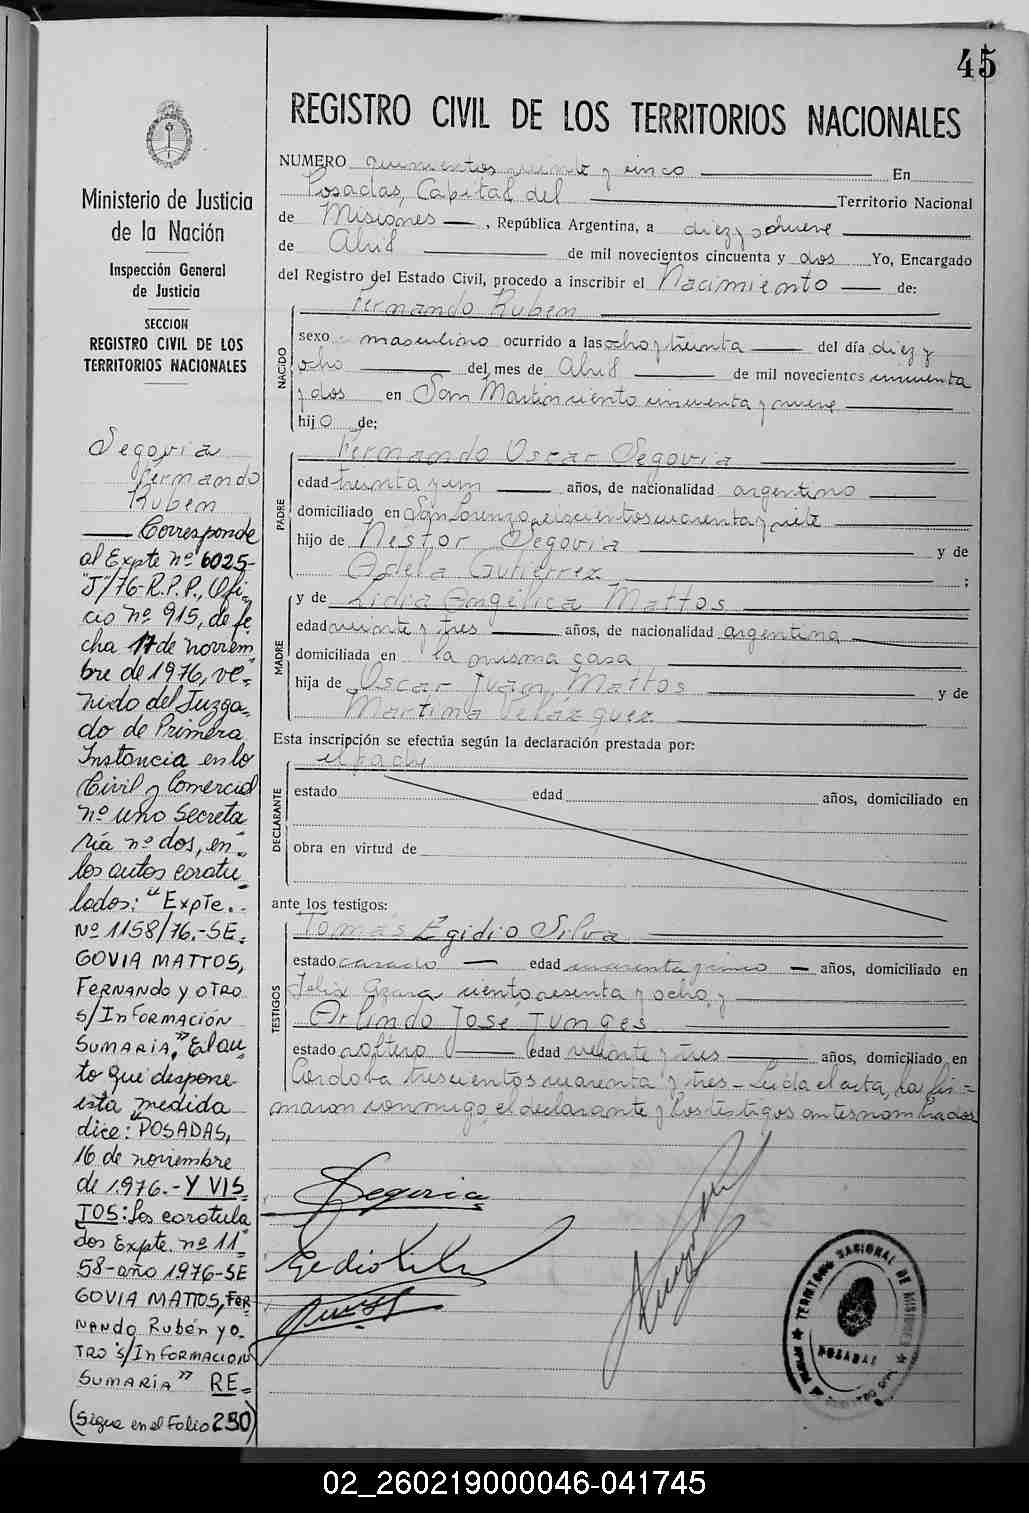 45
REGISTRO CIVIL DE LOS TERRITORIOS NACIONALES
Ministerio de Justicia
de la Nación
Inspección General
de Justicia
SECCION
REGISTRO CIVIL DE LOS
TERRITORIOS NACIONALES
Segovia
Fernando
Ruben
Corresponde
al Expte nº 6025-
"J"/76-R.P.P., Ofi-
cio nº 915, de fe-
cha 17 de noviem
bre de 1976, ve-
nido del Juzga-
do de Primera
Instancia en lo
Civil y Comercial
nº uno Secreta
ría nº dos, en
los autos caratu
lados: "Expte.
Nº 1158/76.-SE-
GOVIA MATTOS,
FERNANDO y OTRO
S/INFORMACIÓN
SUMARIA". El au-
to que dispone
esta medida
dice: "POSADAS,
16 de noviembre
de 1976.- Y VIS-
TOS: Los caratula
dos Expte. nº 11-
58-año 1976-SE
GOVIA MATTOS, FER-
NANDO RUBÉN y O-
TRO S/INFORMACION
SUMARIA" RE-
(Sigue en el Folio 250)
NUMERO quinientos veinte y cinco En
Posadas, Capital del Territorio Nacional
de Misiones, República Argentina, a diez y nueve
de Abril de mil novecientos cincuenta y dos Yo, Encargado
del Registro del Estado Civil, procedo a inscribir el Nacimiento de:
NACIDO
Fernando Ruben
sexo masculino ocurrido a las ocho y treinta del día diez y
ocho del mes de Abril de mil novecientos cincuenta
y dos en San Martín ciento cincuenta y nueve
hijo de:
PADRE
Fernando Oscar Segovia
edad treinta y un años, de nacionalidad argentino
domiciliado en San Lorenzo cuarenta y siete
hijo de Nestor Segovia y de
Adela Gutierrez ;
MADRE
y de Lidia Angélica Mattos
edad veinte y tres años, de nacionalidad argentina
domiciliada en la misma casa
hija de Oscar Juan Mattos y de
Martina Velázquez
Esta inscripción se efectúa según la declaración prestada por:
DECLARANTE
el padre
estado edad años, domiciliado en
obra en virtud de
ante los testigos:
TESTIGOS
Tomás Egidio Silva
estado casado edad cuarenta y cinco años, domiciliado en
Felix Azara ciento sesenta y ocho, y
Arlindo José Junges
estado soltero edad veinte y tres años, domiciliado en
Cordoba trescientos cuarenta y tres - Leída el acta, la fir-
maron conmigo, el declarante y los testigos antes nombrados
Segovia
TERRITORIO NACIONAL DE MISIONES
POSADAS
02_260219000046-041745